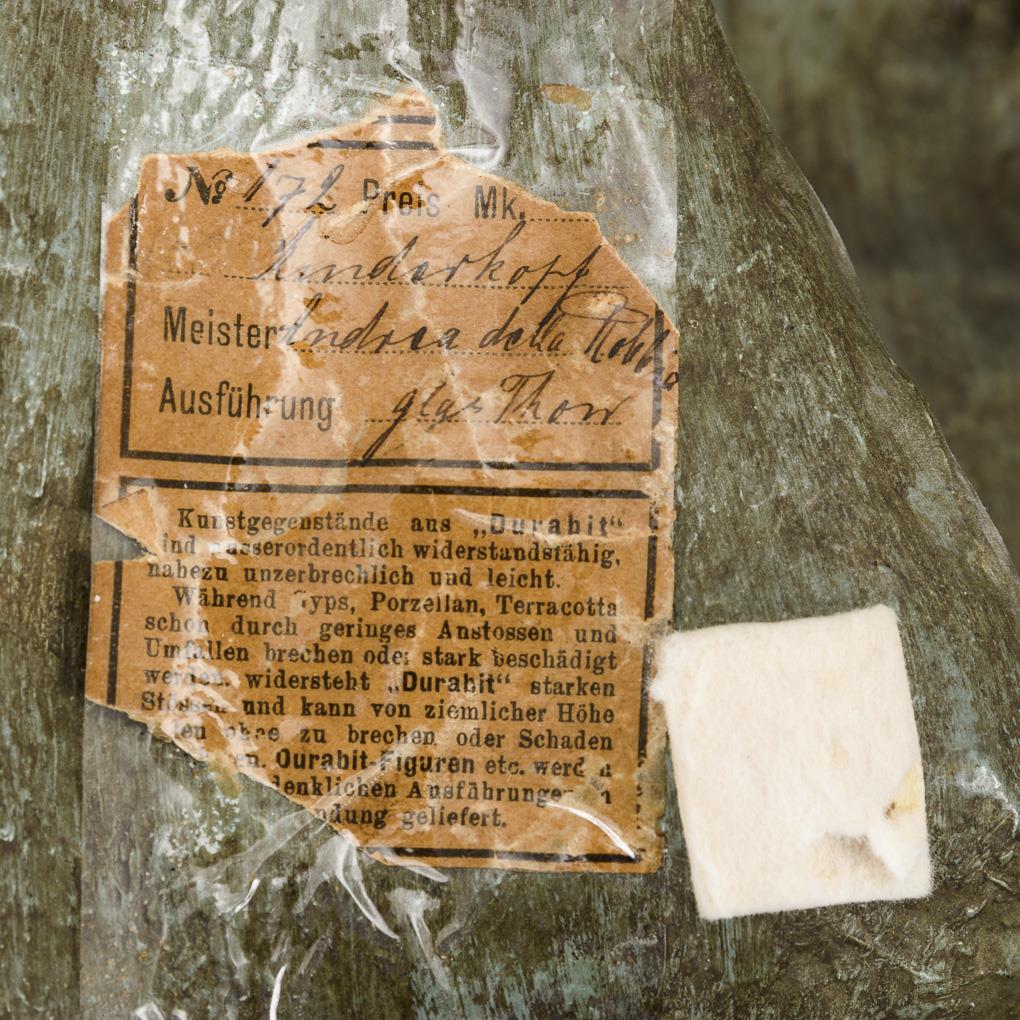 No 172 Preis Mk.
Kinderkopf
Meister Andrea della Robbia
Ausführung glas Thon
Kunstgegenstände aus „Durabit“
ind ausserordentlich widerstandsfähig,
nahezu unzerbrechlich und leicht.
Während Gyps, Porzellan, Terracotta
schon durch geringes Anstossen und
Umfallen brechen oder stark beschädigt
werden. widersteht „Durabit“ starken
Stössen und kann von ziemlicher Höhe
ohne zu brechen oder Schaden
en. Durabit-Figuren etc. werden
denklichen Ausführungen
ndung geliefert.